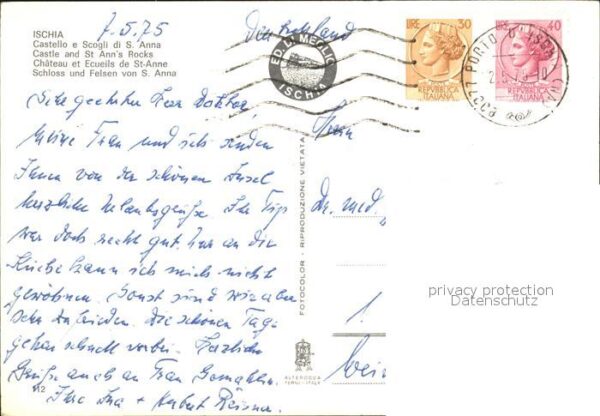 7.5.75
ISCHIA
Castello e Scogli di S. Anna
Castle and St Ann's Rocks
Château et Ecueils de St-Anne
Schloss und Felsen von S. Anna
ED. L. MEGLIO
ISCHIA
LIRE 30
REPVBBLICA
ITALIANA
LIRE 40
REPVBBLICA
ITALIANA
PORTO D'ISCHIA
Sehr geehrter Herr Doktor,
meine Frau und ich senden
Ihnen von der schönen Insel
herzliche Urlaubsgrüße. Ihr Tip
war doch recht gut. Nur an die
Küche kann ich mich nicht
gewöhnen. Sonst sind wir aber
sehr zufrieden. Die schönen Tage
gehen schnell vorbei. Herzliche
Grüße auch an Frau Gemahlin.
Ihre Ina + Herbert
Herrn
Dr. med.
1.
FOTOCOLOR - RIPRODUZIONE VIETATA
ALTEROCCA
TERNI - ITALY
privacy protection
Datenschutz